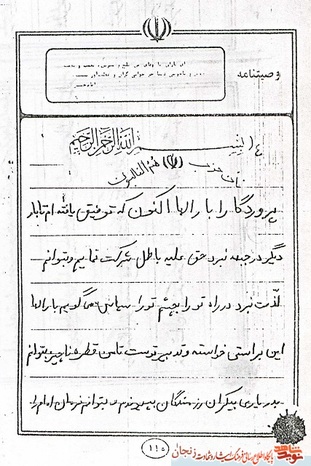 وصیتنامه
بسم الله الرحمن الرحیم
ان حزب الله هم الغالبون
پروردگارا بارالها اکنون که توفیق یافته ام تا بار
دیگر در جبهه نبرد حق علیه باطل شرکت نمایم و بتوانم
لذت نبرد در راه تو را بچشم تو را سپاس می گویم بارالها
این براستی خواسته و تدبیر توست تا من قطره ناچیز بتوانم
به دریای بیکران رزمندگان بپیوندم و بتوانم فرمان امام را
۱۱۵